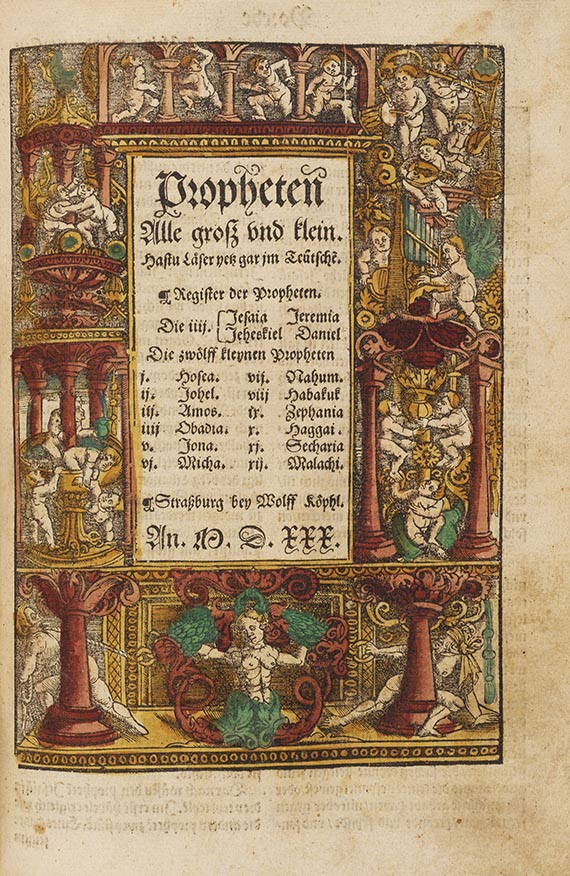 Propheten
Alle groß vnd klein.
Hastu Läser yetz gar jm Teütschẽ.
¶ Register der Propheten.
Die iiij. [Jesaia Jeremia
Jeheskiel Daniel
Die zwölff kleynen Propheten
j. Hosea. vij. Nahum.
ij. Johel. viij Habakuk
iij. Amos. ix. Zephania
iiij Obadia. x. Haggai.
v. Jona. xj. Secharia
vj. Micha. xij. Malachi.
¶ Straßburg bey Wolff Köphl.
An. M. D. XXX.